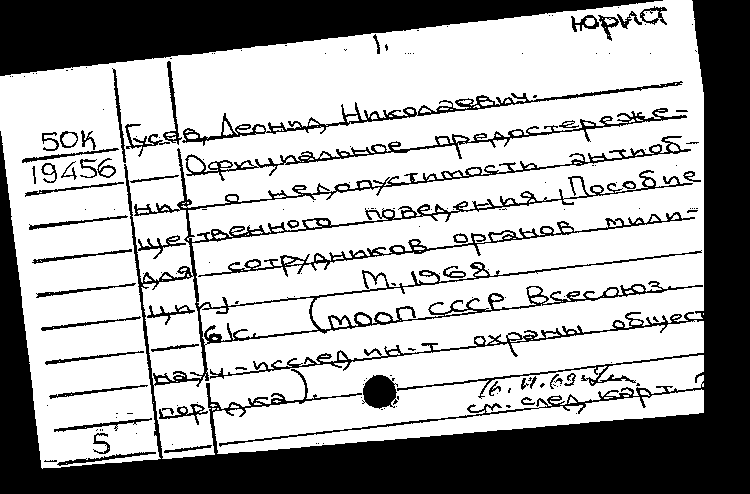 юрист
1.
50К Гусев, Леонид Николаевич.
19456 Официальное предостереже-
ние о недопустимости антиоб-
щественного поведения. [Пособие
для сотрудников органов мили-
ции].
М., 1968.
6 с. (МООП СССР Всесоюз.
науч.-исслед. ин-т охраны общест
порядка).
5
см. след. карт.